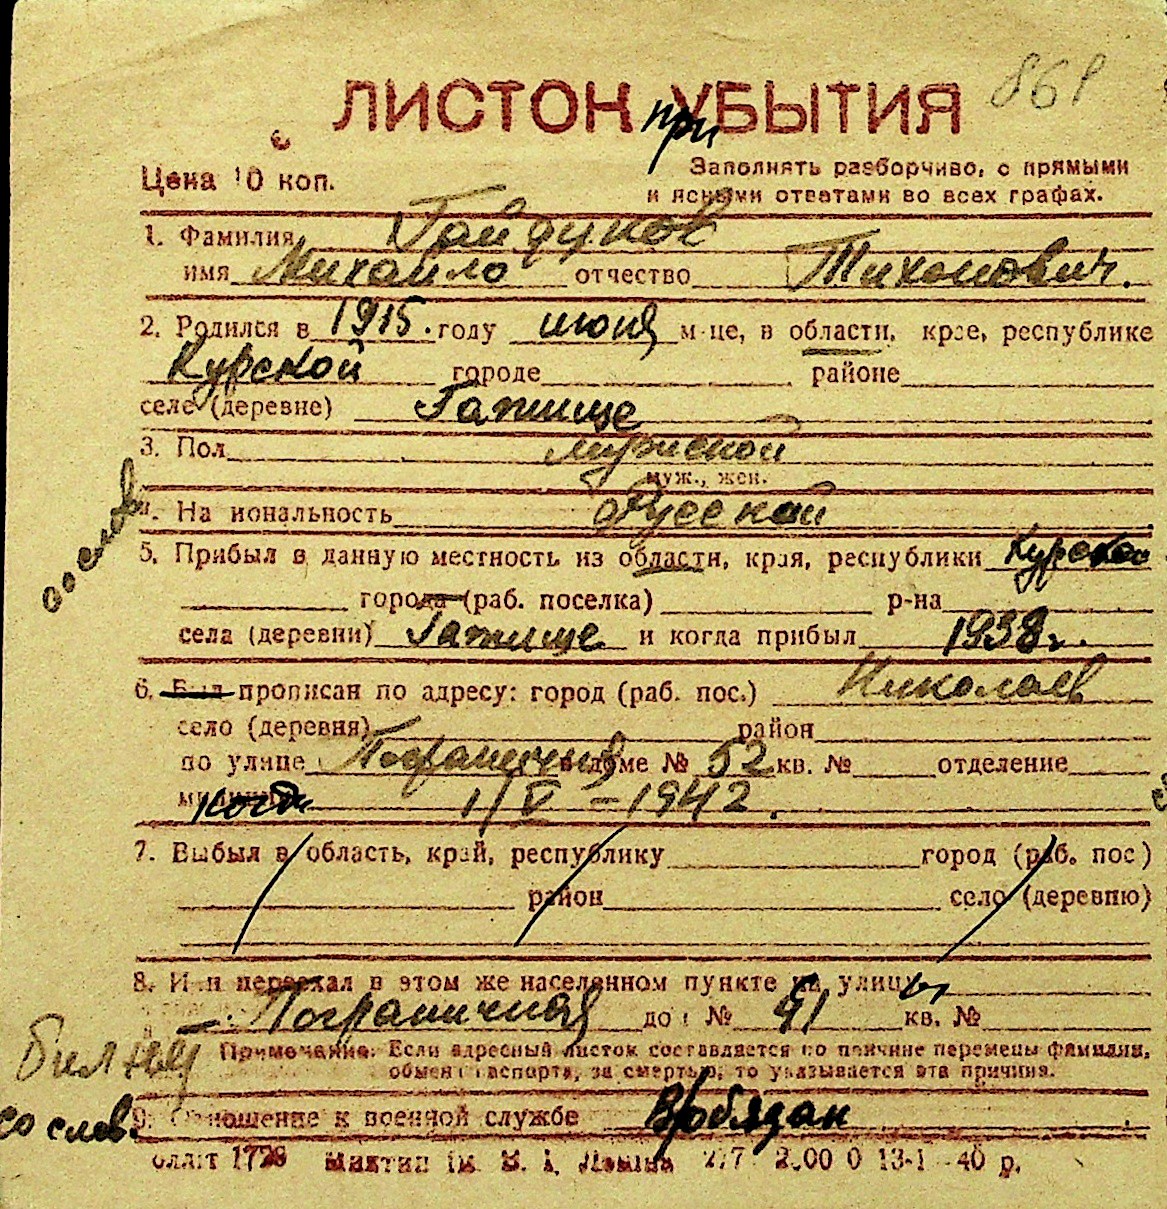 868
ЛИСТОК при УБЫТИЯ
Цена 10 коп.
Заполнять разборчиво, с прямыми
и ясными ответами во всех графах.
1. Фамилия Гайдуков
имя Михайло отчество Тихонович.
2. Родился в 1915. году июня м-це, в области, крае, республике
Курской городе районе
селе (деревне) Гатище
3. Пол мужской
муж., жен.
4. Национальность Русской
со слов
5. Прибыл в данную местность из области, края, республики Курской
города (раб. поселка) р-на
села (деревни) Гатище и когда прибыл 1938 г.
6. Был прописан по адресу: город (раб. пос.) Николаев
село (деревня) район
по улице Пограничная в доме № 52 кв. № отделение
милиции когда 1/V – 1942.
7. Выбыл в область, край, республику город (раб. пос)
район село (деревню)
8. Или переехал в этом же населенном пункте на улицу
Пограничная дом № 41 кв. №
Примечание: Если адресный листок составляется по причине перемены фамилии,
обмен паспорта, за смертью, то указывается эта причина.
со слов.
9. Отношение к военной службе В/обязан
1728 им. В. И. Ленина